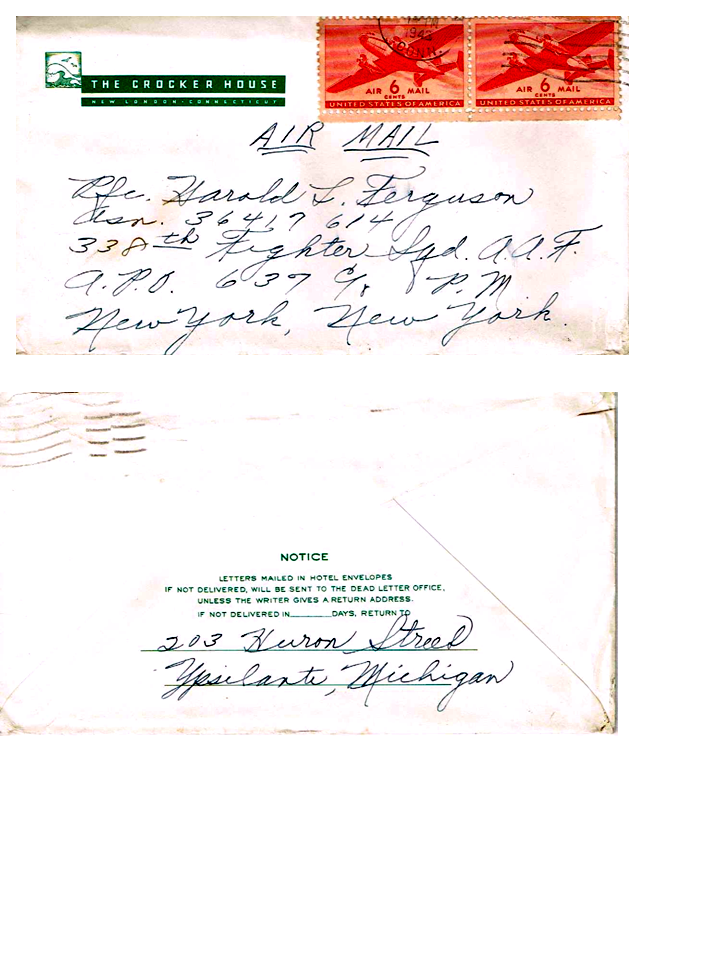 THE CROCKER HOUSE
NEW LONDON · CONNECTICUT
1943
CONN.
AIR 6 MAIL
CENTS
UNITED STATES OF AMERICA
AIR 6 MAIL
CENTS
UNITED STATES OF AMERICA
AIR MAIL
Pfc. Harold L. Ferguson
asn. 36417614
338th Fighter Sqd. A.A.F.
A.P.O. 637 c/o P.M
New York, New York.
NOTICE
LETTERS MAILED IN HOTEL ENVELOPES
IF NOT DELIVERED, WILL BE SENT TO THE DEAD LETTER OFFICE,
UNLESS THE WRITER GIVES A RETURN ADDRESS.
IF NOT DELIVERED IN______DAYS, RETURN TO
203 Huron Street
Ypsilante, Michigan